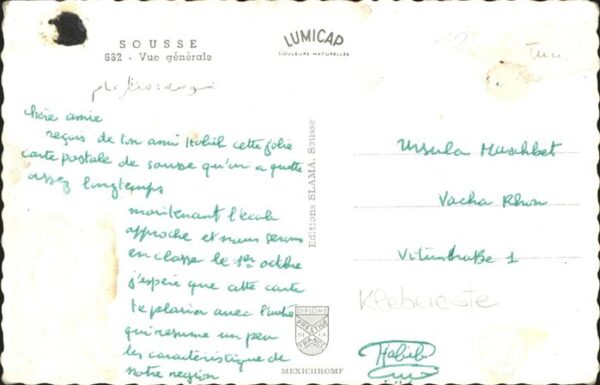 SOUSSE
682 - Vue générale
سوسة : منظر عام
LUMICAP
COULEURS NATURELLES
chère amie
reçois de ton ami Habib cette jolie
carte postale de sousse qu'on a quitté
assez longtemps
maintenant l'école
approche et nous serons
en classe le 1er octobre
j'espère que cette carte
te plaira avec l'autre
qui resume un peu
les caractéristique de
notre region
Editions SLAMA, Sousse
DIPLOME
PRESTIGE
DE LA
FRANCE
MEXICHROME
Ursula Muschbet
Vacha Rhön
Vitusstraße 1
Habib